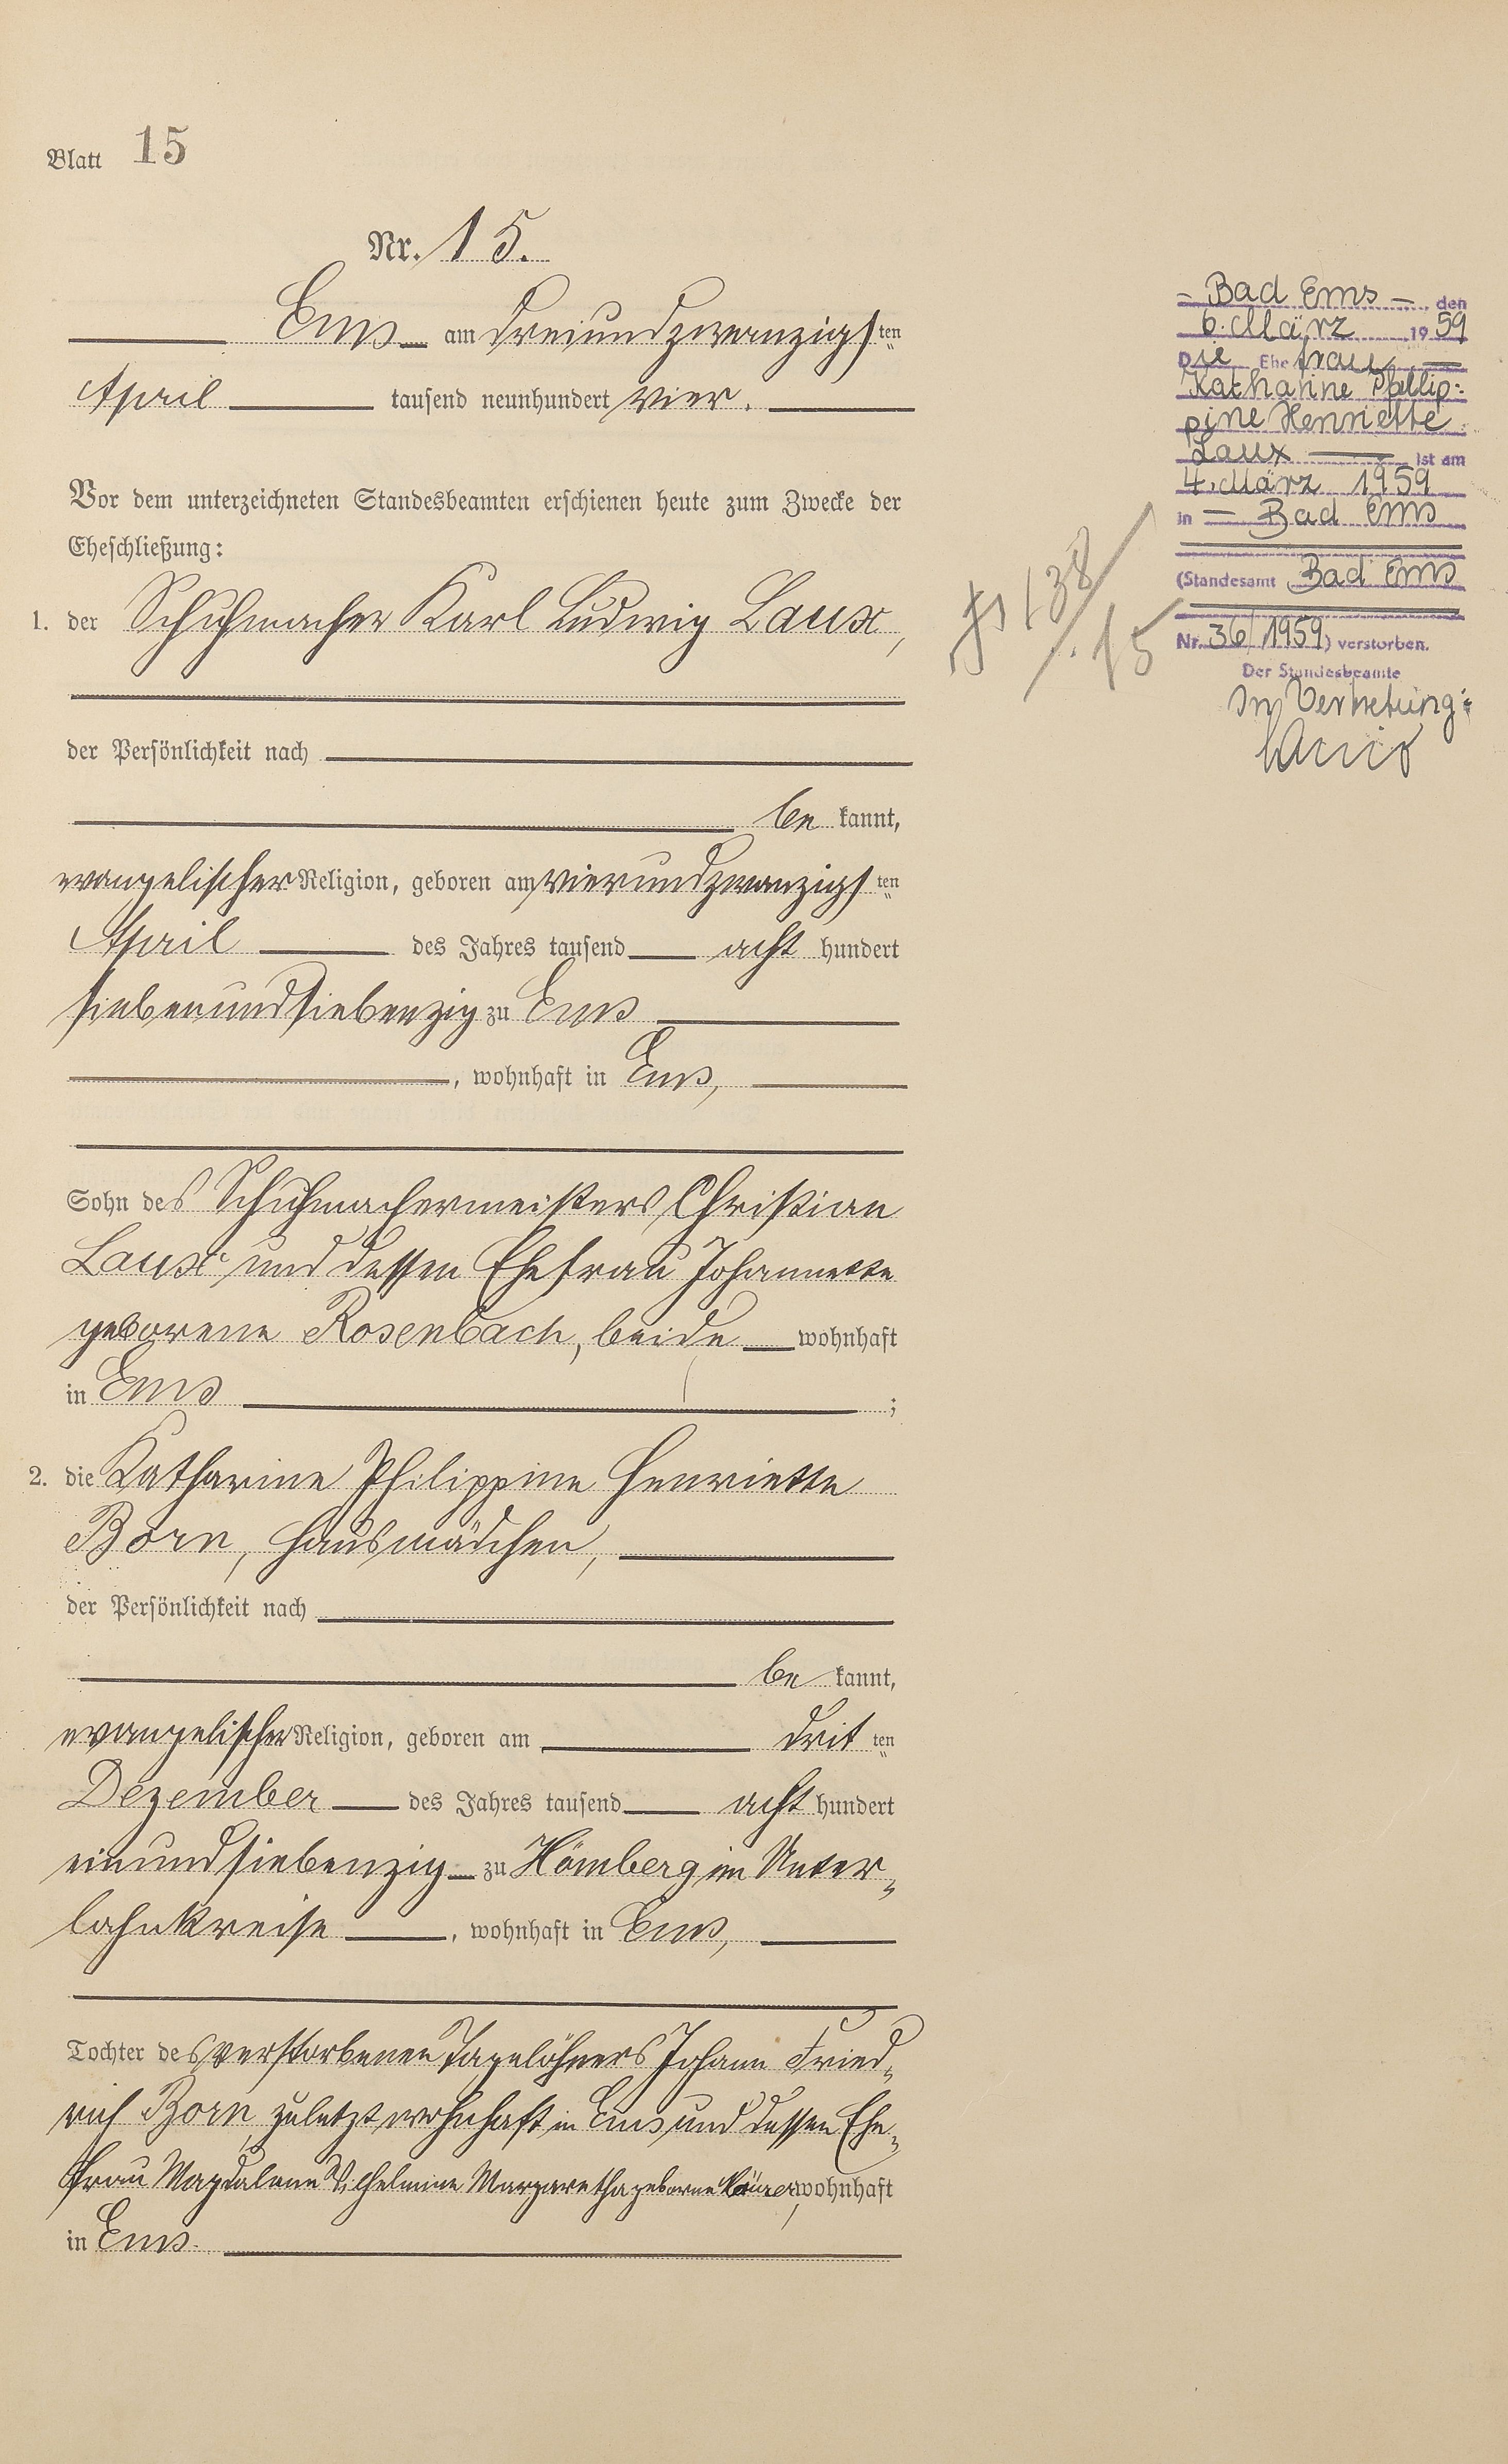 Blatt 15
Nr. 15.
Ems am dreiundzwanzigsten
April tausend neunhundert vier.
Vor dem unterzeichneten Standesbeamten erschienen heute zum Zwecke der
Eheschließung:
1. der Schuhmacher Karl Ludwig Laux,
der Persönlichkeit nach
be kannt,
evangelischer Religion, geboren am vierundzwanzigsten
April des Jahres tausend acht hundert
siebenundsiebenzig zu Ems
, wohnhaft in Ems,
Sohn des Schuhmachermeisters Christian
Laux und dessen Ehefrau Johannette
geborene Rosenbach, beide wohnhaft
in Ems ;
2. die Katharine Philippine Henriette
Born, Hausmädchen,
der Persönlichkeit nach
be kannt,
evangelischer Religion, geboren am dritten
Dezember des Jahres tausend acht hundert
einundsiebenzig zu Hömberg im Unter-
lahnkreise, wohnhaft in Ems,
Tochter des verstorbenen Tagelöhners Johann Fried-
rich Born, zuletzt wohnhaft in Ems und dessen Ehe-
frau Magdalene Wilhelmine Margaretha geborne wohnhaft
in Ems.
- Bad Ems -, den
6. März 1959
Die Ehefrau
Katharine Phillip-
pine Henriette
Laux ist am
4. März 1959
in - Bad Ems
(Standesamt Bad Ems
Nr. 36/1959) verstorben.
Der Standesbeamte
In Vertretung:
138/
15